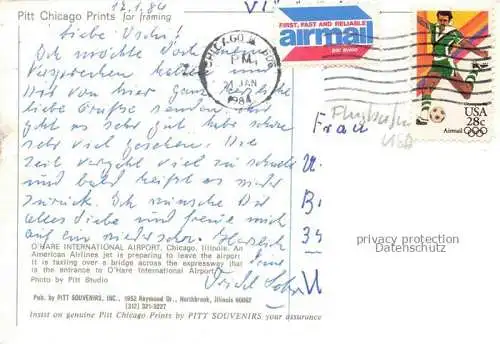 17.1.84
Pitt Chicago Prints for framing
FIRST, FAST AND RELIABLE
airmail
par avion
CHICAGO IL 606
PM
JAN
1984
Olympics 84
USA
28c
Airmail
Liebe Uschi!
Ich möchte
Versprechen und
Dir von hier ganz herzliche
liebe Grüße senden. Mir
geht es sehr gut, habe schon
sehr viel gesehen. Die
Zeit vergeht viel zu schnell
und bald heißt es wieder
zurück. Ich wünsche Dir
alles Liebe und freue mich
auf ein Wiedersehen. Herzlich
Frau
U.
B.
34
U
privacy protection
Datenschutz
O'HARE INTERNATIONAL AIRPORT, Chicago, Illinois. An
American Airlines jet is preparing to leave the airport.
It is taxiing over a bridge across the expressway (that
is the entrance to O'Hare International Airport)
Photo by Pitt Studio
Pub. by PITT SOUVENIRS, INC., 1952 Raymond Dr., Northbrook, Illinois 60062
(312) 321-3227
Insist on genuine Pitt Chicago Prints by PITT SOUVENIRS your assurance